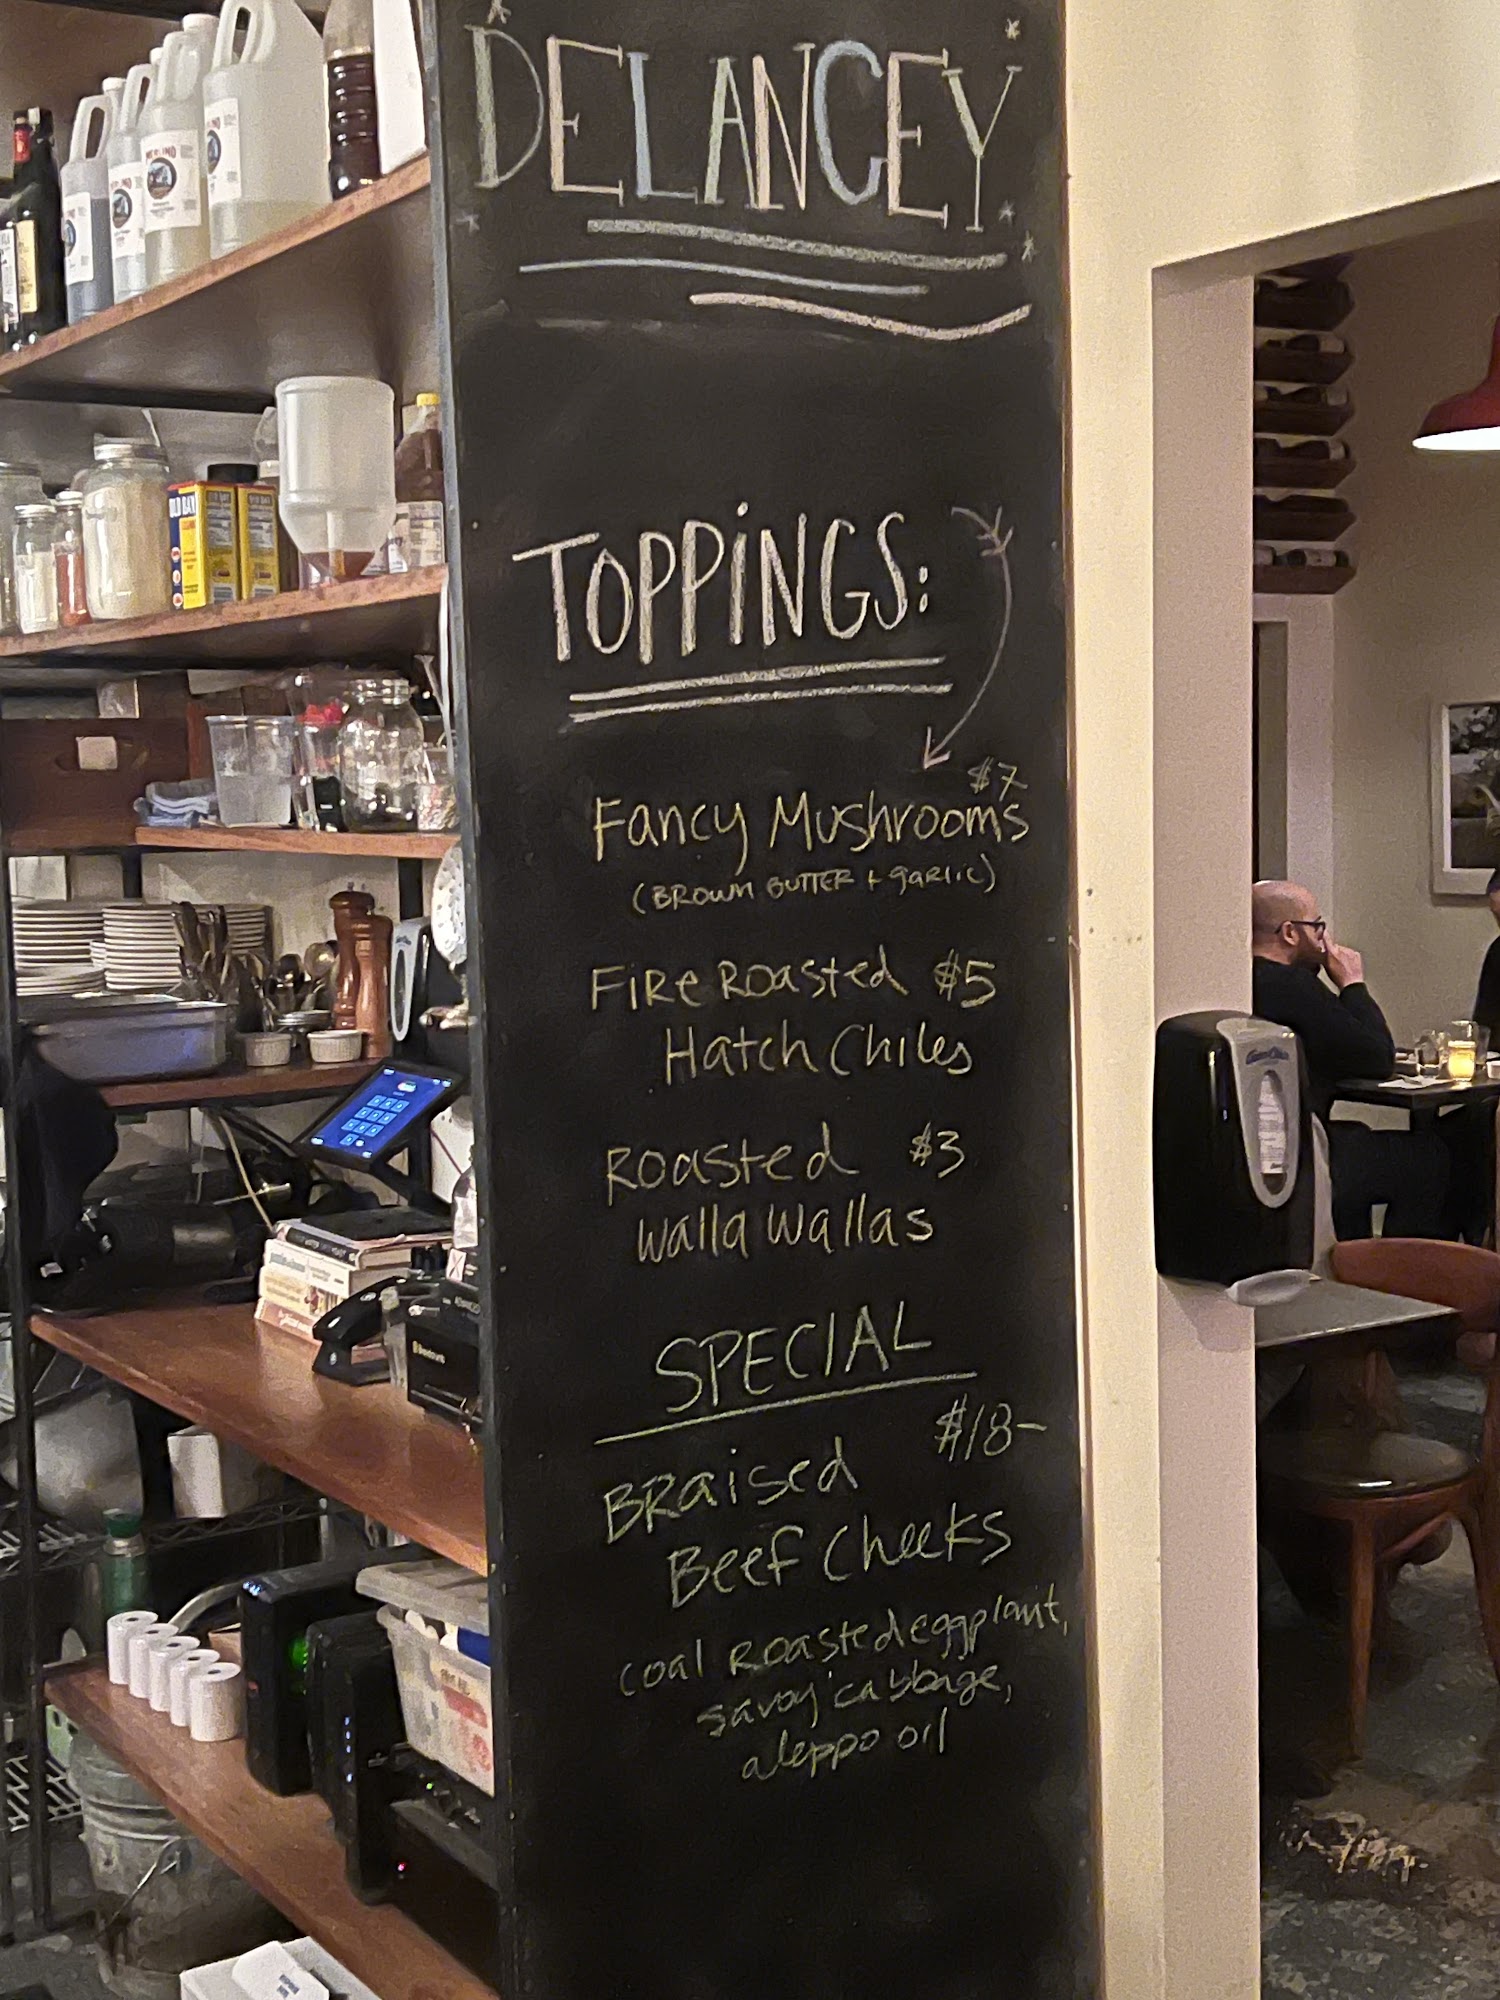 DELANCEY
TOPPINGS:
$7
Fancy Mushrooms
(Brown Butter + garlic)
Fire Roasted $5
Hatch Chiles
Roasted $3
Walla Wallas
SPECIAL
$18-
Braised
Beef Cheeks
coal Roasted eggplant,
savoy cabbage,
aleppo oil
MERLINO
OLD BAY
OLD BAY